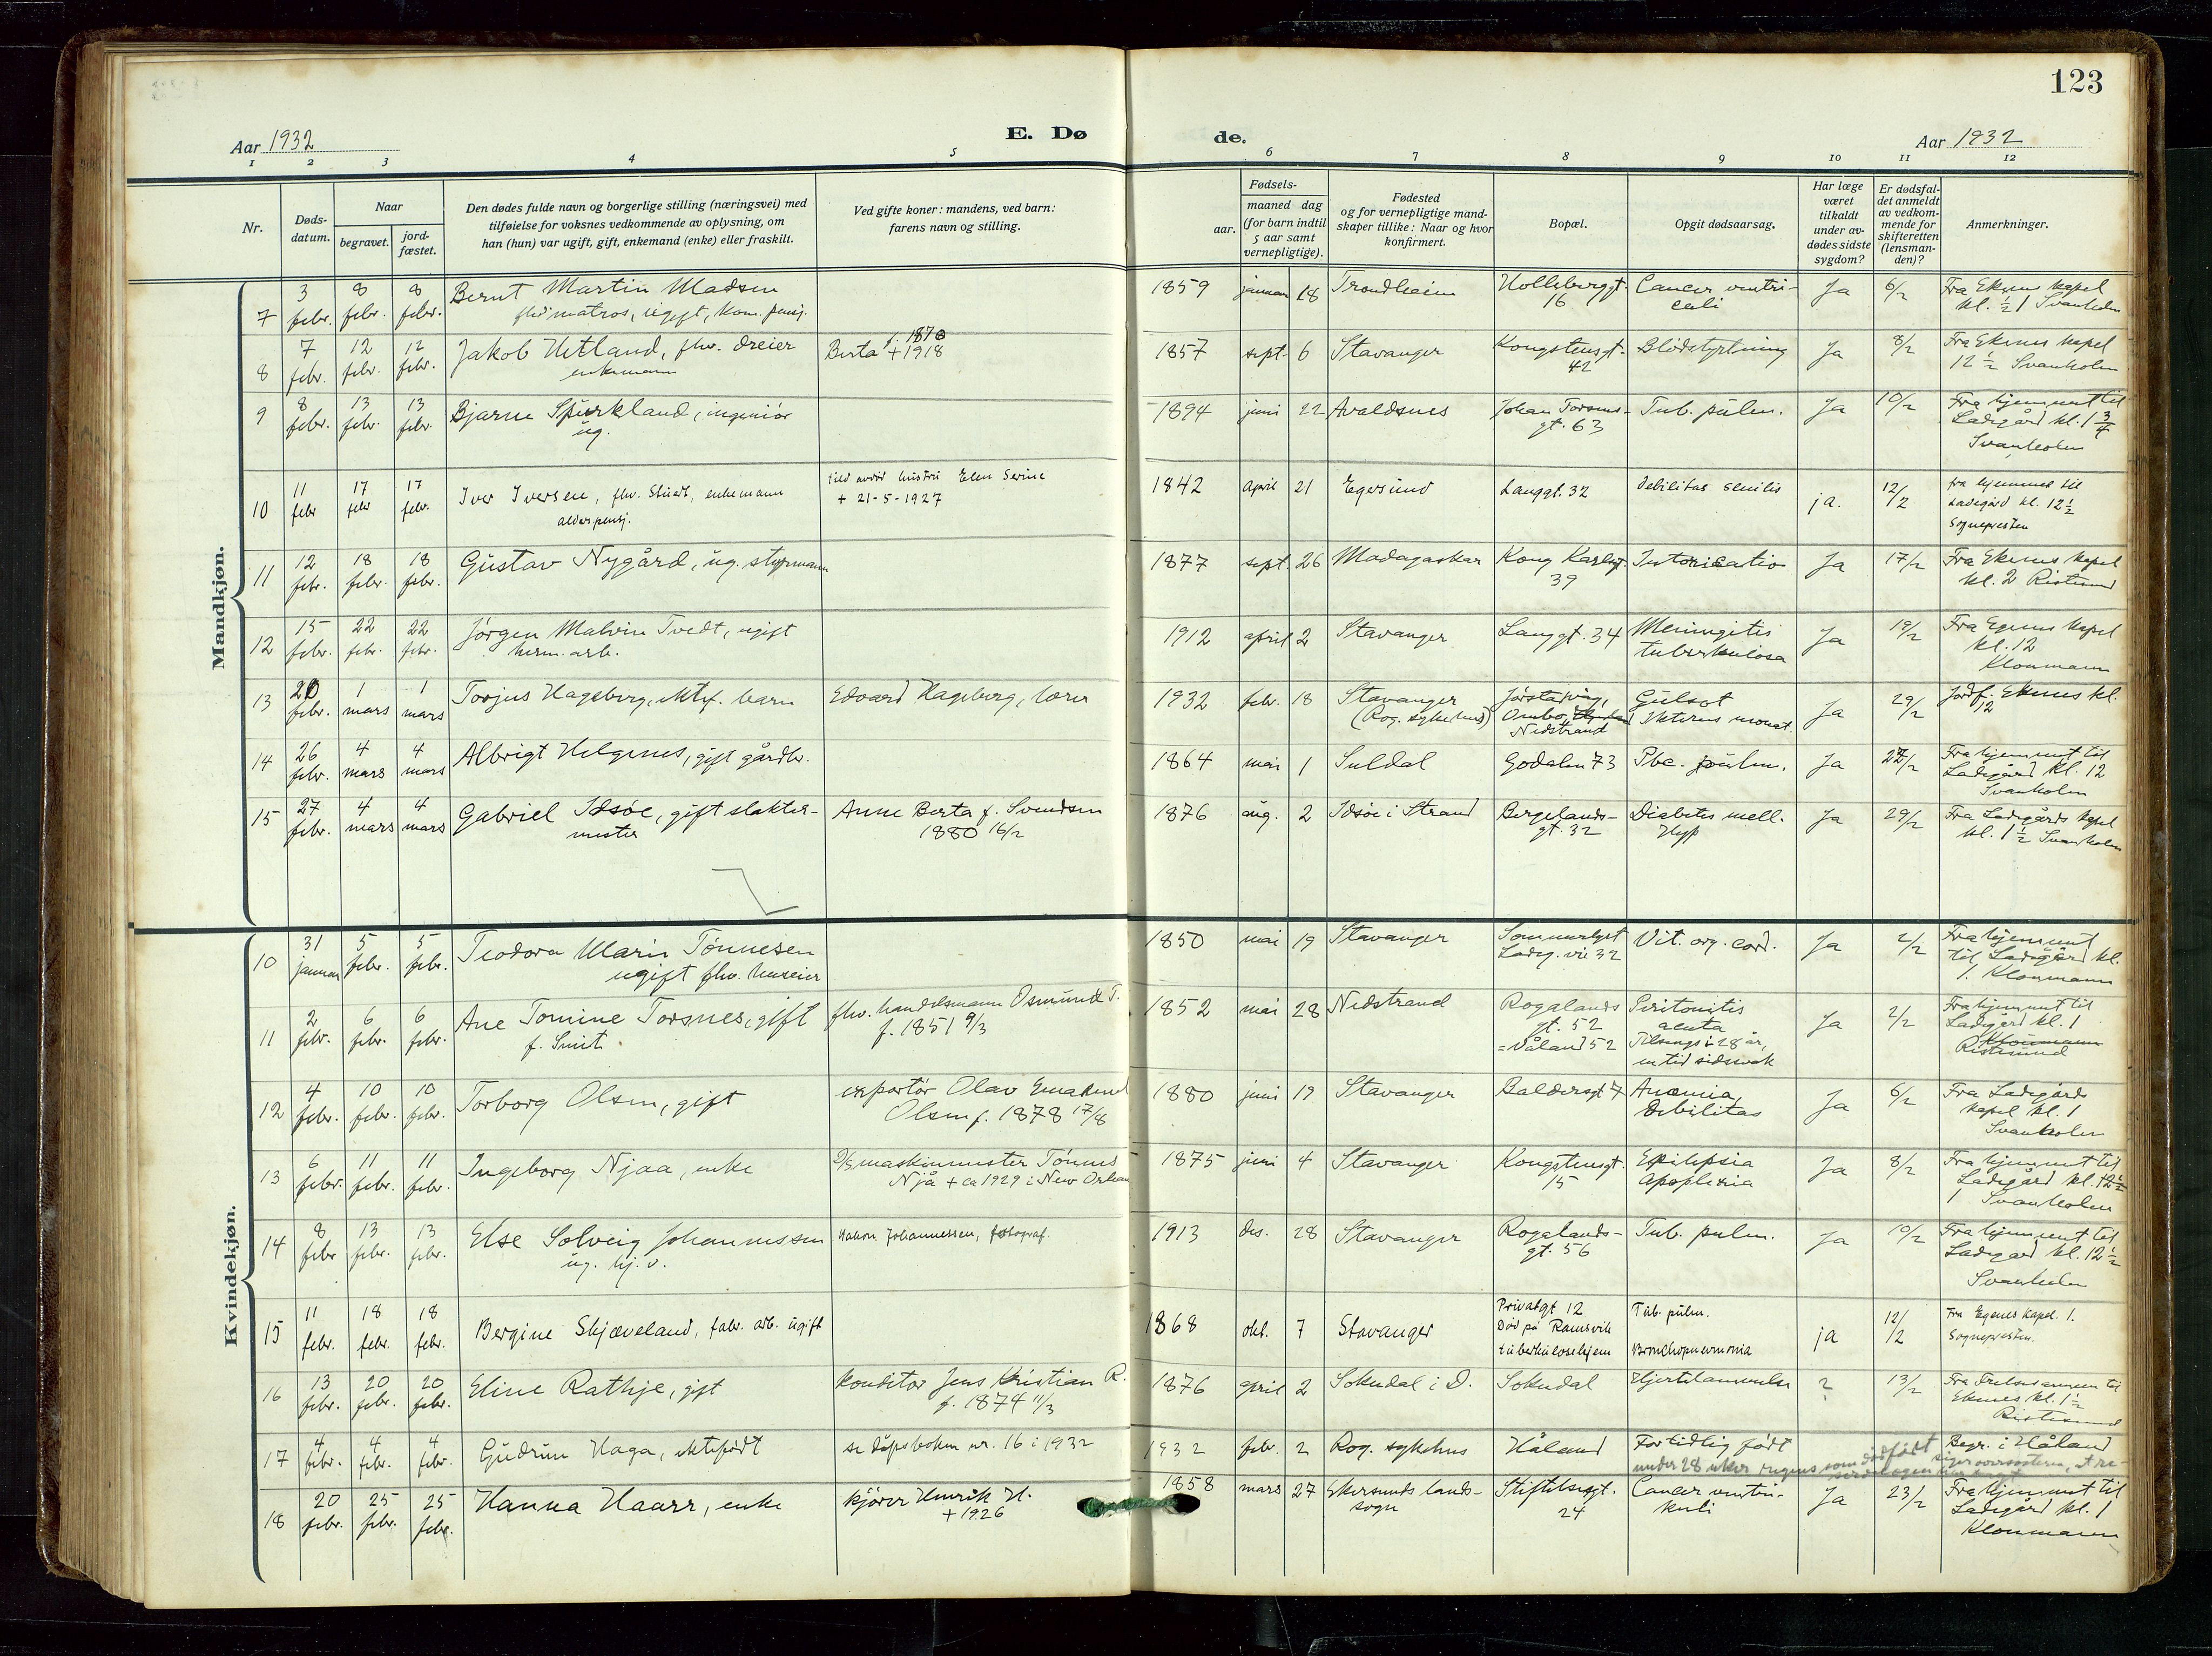 123
Aar 1932
E. Dø
de.
Aar 1932
1 2 3 4 5 6 7 8 9 10 11 12
Nr.
Døds-
datum.
Naar
begravet.
jord-
fæstet.
Den dødes fulde navn og borgerlige stilling (næringsvei) med
tilføielse for voksnes vedkommende av oplysning, om
han (hun) var ugift, gift, enkemand (enke) eller fraskilt.
Ved gifte koner: mandens, ved barn:
farens navn og stilling.
Fødsels-
aar.
maaned dag
(for barn indtil
5 aar samt
vernepligtige).
Fødested
og for vernepligtige mand-
skaper tillike: Naar og hvor
konfirmert.
Bopæl.
Opgit dødsaarsag.
Har læge
været
tilkaldt
under av-
dødes sidste
sygdom?
Er dødsfal-
det anmeldt
av vedkom-
mende for
skifteretten
(lensman-
den)?
Anmerkninger.
Mandkjøn.
7 3 febr. 8 febr. 8 febr.
Bernt Martin Madsen
fhv. matros, ugift, kom. pensj.
1859 januar 18 Trondheim
Holbergsgt.
16
Cancer ventri-
culi
Ja 6/2
Fra Ekenes kapel
kl. ½1 Svanholm
8 7 febr. 12 febr. 12 febr.
Jakob Hetland, fhv. dreier
enkemann
Berta f. 1870
+ 1918
1857 sept. 6 Stavanger
Kongstensgt.
42
Blodstyrtning
Ja 8/2
Fra Ekenes kapel
12 ½ Svanholm
9 8 febr. 13 febr. 13 febr.
Bjarne Spurkland, ingeniør
ug.
1894 juni 22 Avaldsnes
Johan Torsens-
gt. 63
Tub. pulm.
Ja 10/2
Fra hjemmet til
Ladegård kl. 1 3/4
Svanholm
10 11 febr 17 febr 17 febr.
Iver Iversen, fhv. enkemann
alderspensj.
hustru Elen Serine
+ 21-5-1927
1842 April 21 Egersund
Langgt. 32
debilitas senilis
ja. 12/2
fra hjemmet til
Ladegård kl. 12½
Sognepresten
11 12 febr. 18 febr. 18 febr.
Gustav Nygård, ug. styrmann
1877 sept. 26 Madagaskar
Kong Karlsgt.
39
Intoxicatio
Ja 17/2
Fra Ekenes kapel
kl. 2 Ristesund
12 15 febr. 22 febr. 22 febr.
Jørgen Malvin Tvedt, ugift
herm. arb.
1912 april 2 Stavanger
Langgt. 34
Meningitis
tuberkulosa
Ja 19/2
Fra Egenes kapel
kl. 12
Kloumann
13 20 febr. 1 mars 1 mars
Torjus Hageberg, ektef. barn
Edvard Hageberg, lærer
1932 febr. 18
Stavanger
(Rog. sykehus)
Ombo,
Nedstrand
Gulsot
Ikterus neonat.
Ja 29/2
Jordf. Ekenes kl.
12
14 26 febr. 4 mars 4 mars
Albrigt Helgenes, gift gårdbr.
1864 mai 1 Suldal
Godalen 73
Pbc. pulm.
Ja 27/2
Fra hjemmet til
Ladegård kl. 12
Svanholm
15 27 febr. 4 mars 4 mars
Gabriel Idsøe, gift slakter-
mester
Anne Berta f. Svendsen
1880 16/2
1876 aug. 2 Idsøe i Strand
Bergelands-
gt. 32
Diabetes mell.
Hyp
Ja 29/2
Fra Ladegårds kapel
kl. 1 ½ Svanholm
Kvindekjøn.
10 31 januar 5 febr. 5 febr.
Teodora Marie Tønnesen
ugift fhv. huseier
1850 mai 19 Stavanger
Sommerlyst
Ladeg. vei 32
Vit. org. cord.
Ja 2/2
Fra hjemmet
til Ladegård kl.
1. Kloumann
11 2 febr. 6 febr. 6 febr.
Ane Tomine Torsnes, gift
f. Smit
fhv. handelsmann Osmund T.
f. 1851 9/3
1852 mai 28 Nedstrand
Rogalands
gt. 52
= Våland 52
Peritonitis
acuta
Tilsengs i 28 år,
Ja 2/2
Fra hjemmet til
Ladegård kl. 1
Kloumann
Ristesund
12 4 febr. 10 febr. 10 febr.
Torborg Olsen, gift
exportør Olav Emanuel
Olsen f. 1878 17/8
1880 juni 19 Stavanger
Baldersgt 7
Anæmia,
Debilitas
Ja 6/2
Fra Ladegårds
kapel kl. 1
Svanholm
13 6 febr. 11 febr. 11 febr.
Ingeborg Njaa, enke
maskinmester Tønnes
Njå + ca 1929 i New Orleans
1875 juni 4 Stavanger
Kongstensgt.
15
Epilepsia
Apoplexia
Ja 8/2
Fra hjemmet til
Ladegård kl. 12½
1 Svanholm
14 8 febr 13 febr. 13 febr.
Else Solveig Johannessen
ug. hj. v.
Håkon Johannessen, fotograf.
1913 des. 28 Stavanger
Rogalands-
gt. 56
Tub. pulm.
Ja 10/2
Fra hjemmet til
Ladegård kl. 12½
Svanholm
15 11 febr. 18 febr. 18 febr.
Bergine Skjæveland, fabr. arb. ugift
1868 okt. 7 Stavanger
Privatgt 12
Død på Ramsvik
tuberkulosehjem
Tub. pulm.
Bronchopneumonia
ja 12/2
Fra Egenes kapel 1.
Sognepresten.
16 13 febr. 20 febr. 20 febr.
Eline Rathje, gift
konditor Jens Kristian R.
f. 1874 11/3
1876 april 2 Sokndal i D.
Sokndal
Hjertelammelse
? 13/2
Fra Frelsesarmeen til
Ekenes kl. 1½
Ristesund
17 4 febr. 4 febr. 4 febr.
Gudrun Haga, ektefødt
se dåpsboken nr. 16 i 1932
1932 febr. 2 Rog. sykehus
Håland
For tidlig født
under 28 uker regnes som dødfødt
Begr. i Håland
18 20 febr. 25 febr. 25 febr.
Hanna Haarr, enke
kjører Henrik H.
+ 1926
1858 mars 27
Ekersunds lands-
sogn
Stiftelsesgt.
24
Cancer ventri-
kuli
Ja 23/2
Fra hjemmet til
Ladegård kl. 1
Kloumann